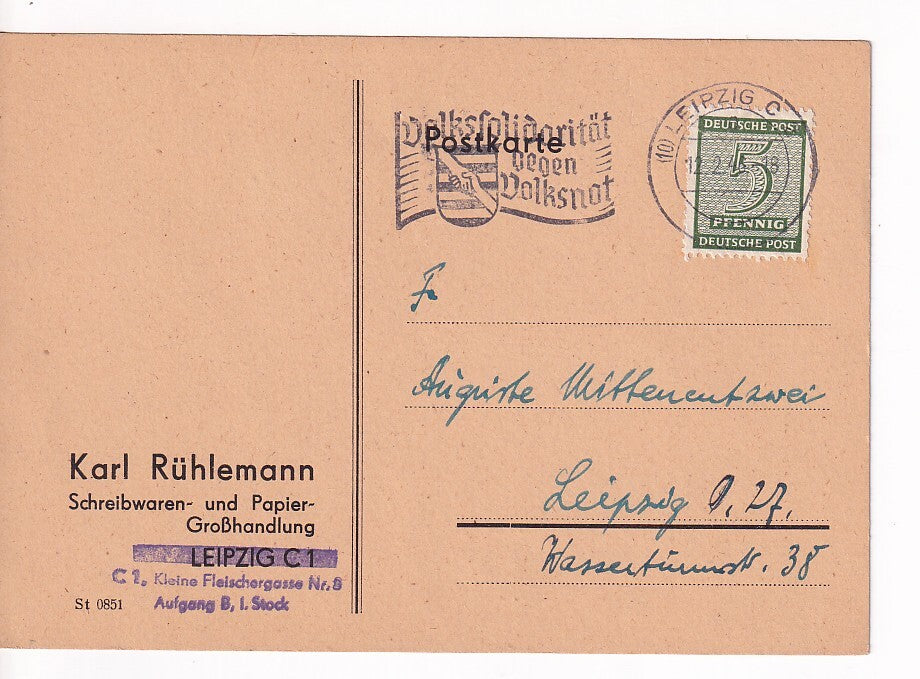 Volkssolidarität
gegen
Volksnot
Postkarte
(10) LEIPZIG C
12.2.46.-18
DEUTSCHE POST
5
PFENNIG
DEUTSCHE POST
Auguste Mittenentzwei
Leipzig O. 27.
Wasserturmstr. 38
Karl Rühlemann
Schreibwaren- und Papier-
Großhandlung
LEIPZIG C 1
C 1, Kleine Fleischergasse Nr. 8
Aufgang B, I. Stock
St 0851